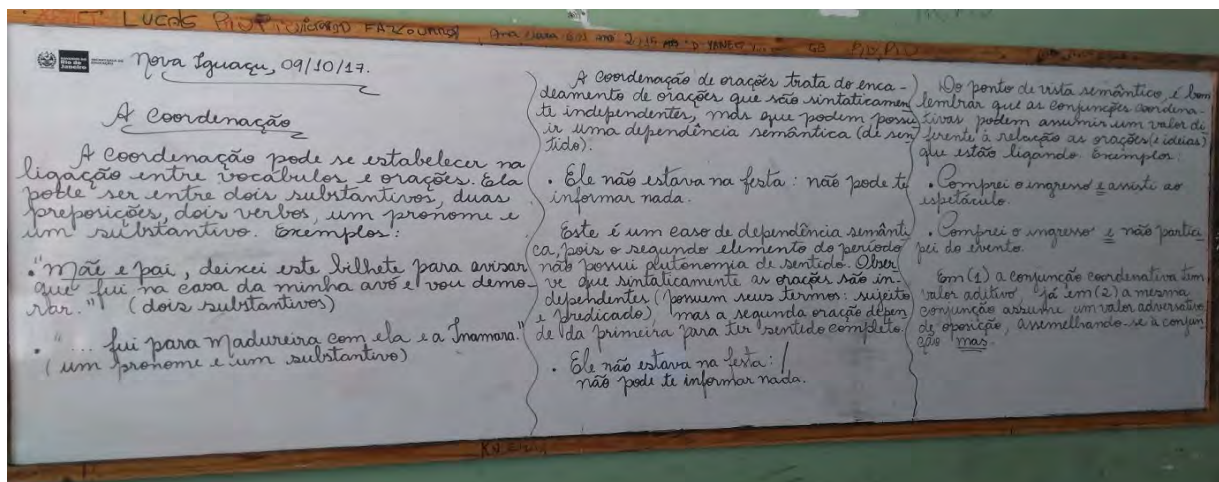 LUCAS
FAZ
GB
Rio de Janeiro
Nova Iguaçu, 09/10/17.
A Coordenação
A Coordenação pode se estabelecer na
ligação entre vocábulos e orações. Ela
pode ser entre dois substantivos, duas
preposições, dois verbos, um pronome e
um substantivo. Exemplos:
• "Mãe e pai, deixei este bilhete para avisar
que fui na casa da minha avó e vou demo-
rar." (dois substantivos)
• "... fui para Madureira com ela e a Inamara."
(um pronome e um substantivo)
A Coordenação de orações trata do enca-
deamento de orações que são sintaticamen
te independentes, mas que podem possu
ir uma dependência semântica (de sen
tido).
• Ele não estava na festa: não pode te
informar nada.
Este é um caso de dependência semânti
ca, pois o segundo elemento do período
não possui autonomia de sentido. Obser
ve que sintaticamente as orações são in-
dependentes (possuem seus termos: sujeito
e predicado), mas a segunda oração depen
de da primeira para ter sentido completo.
• Ele não estava na festa: /
não pode te informar nada.
Do ponto de vista semântico, é bom
lembrar que as conjunções coordena-
tivas podem assumir um valor di
ferente à relação as orações (e ideias)
que estão ligando. Exemplos:
• Comprei o ingresso e assisti ao
espetáculo.
• Comprei o ingresso e não partici
pei do evento.
Em (1) a conjunção coordenativa tem
valor aditivo, já em (2) a mesma
conjunção assume um valor adversativo
de oposição, assemelhando-se à conjun
ção mas.